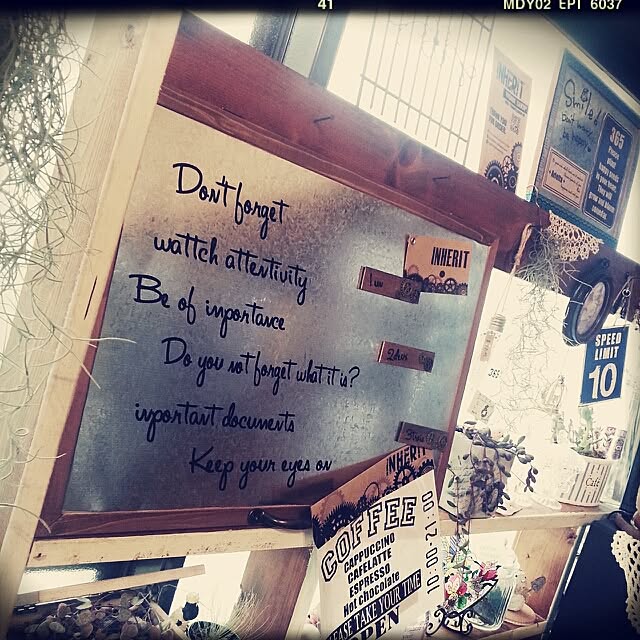 41
MDY02 EPT 6037
INHERIT
Smile!
Don't
be happy!
365
Don't forget
wattch attertivity
Be of importance
Do you not forget what it is?
inportant documents
Keep your eyes on
INHERIT
SPEED
LIMIT
10
Café
INHERIT
COFFEE
CAPPUCCINO
CAFELATTE
ESPRESSO
Hot chocolate
10:00-21:00
PLEASE TAKE YOUR TIME
OPEN